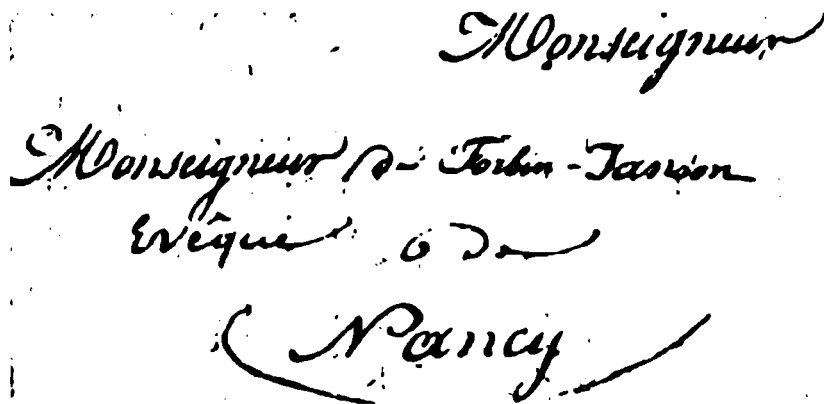 Monseigneur
Monseigneur de Forbin-Janson
Evêque de
Nancy